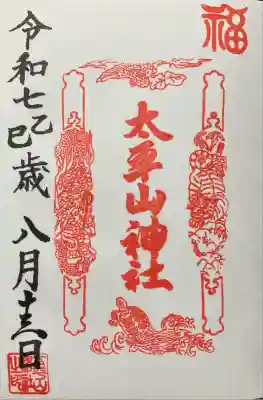 福
太平山神社
令和七乙巳歳 八月十三日